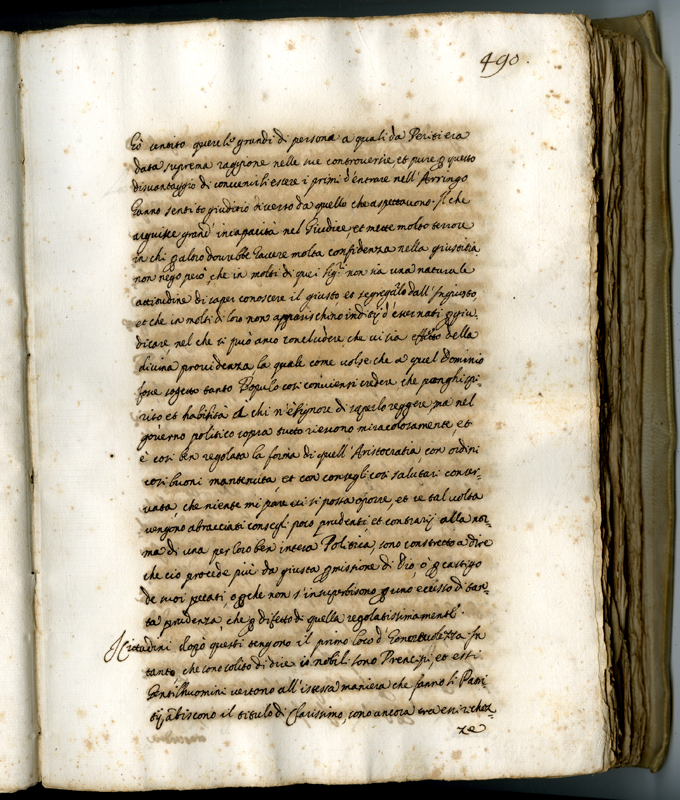 490.
sentito querele grandi di persone a quali da Periti era
data suprema raggione nelle sue controversie, et pure questo
disvantaggio di convenirli essere i primi d'entrare nell'Arringo
hanno sentito giuditio diverso da quello che aspettavono. Il che
arguisce grand'incapacità nel Giudice, et mette molto terrore
in chi aloro dovrebbe havere molta confidenza nella giustitia
non nego però, che in molti di quei Sig.ri non sia una naturale
attitudine di saper conoscere il giusto et segregarlo dall'Ingiusto,
et che in molti di loro non apparischino inditij d'esser nati giu-
dicare, nel che si può anco concludere che vi sia effetto della
divina providenza, la quale come volse che a quel Dominio
fosse sogetto tanto Popolo così convienti credere che ponghi spi-
rito et habilità a chi n'è signore di saperlo reggere, ma nel
governo politico sopra tutto riescono miracolosamente et
è così ben regolata la forma di quell'Aristocratia con ordini
così buoni mantenuta, et con consegli così salutari conser-
vata, che niente mi pare vi si possa oporre, et se tal volta
vengono abracciati consegli poco prudenti, et contrarij alla nor-
ma di una per loro ben intesa Politica, sono constretto a dire
che ciò procede più da giusta permissione di Dio, o castigo
de suoi peccati, o che non s'insuperbisono uno eccesso di tan-
ta prudenza, che difetto di quella regolatissimamente.
I Cittadini dopò questi tengono il primo loco d'honorevolezza In
tanto, che sono solito di dire io nobili sono Prencipi, et essi
Gentilhuomini vertono all'istessa maniera che fanno li Patri-
tij abiscono il titulo di Clarissimo, sono ancora tra essi richez-
ze